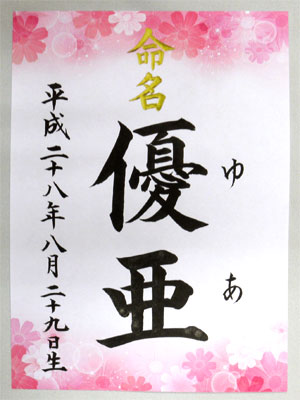 命名
優亜
ゆあ
平成二十八年八月二十九日生